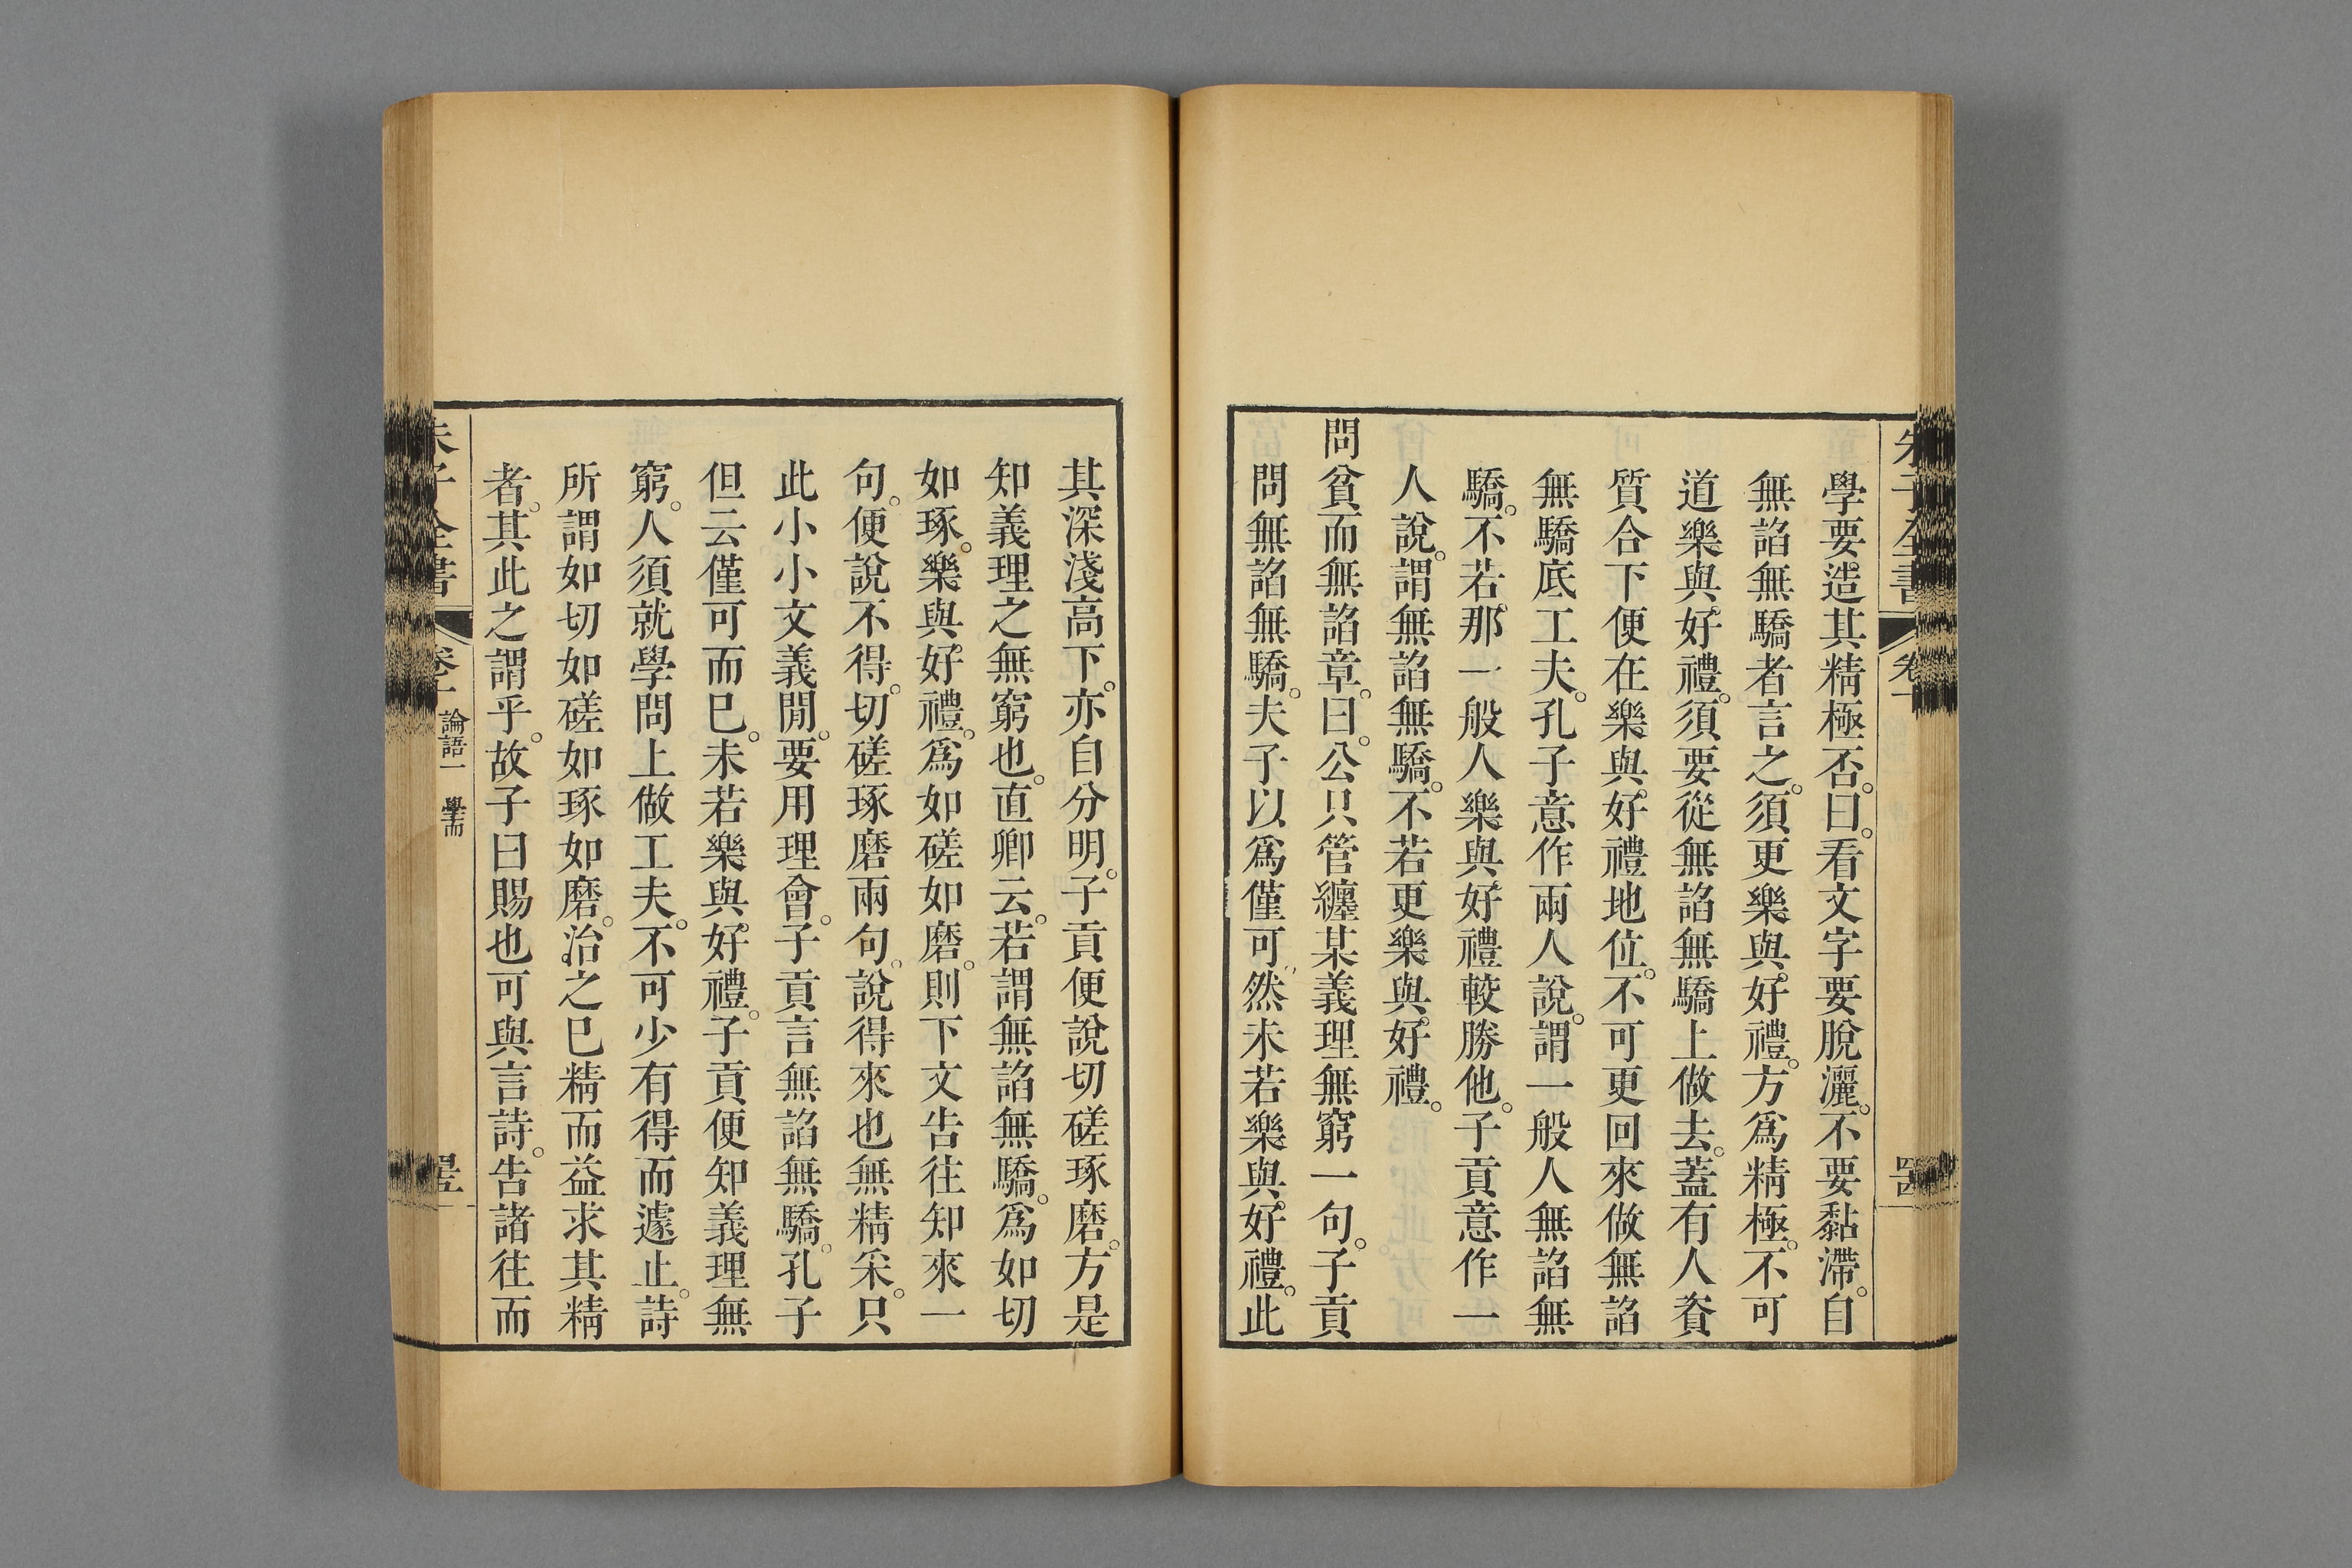 學要造其精極否。曰。看文字要脫灑。不要黏滯。自
無諂無驕者言之。須更樂與好禮。方爲精極。不可
道樂與好禮。須要從無諂無驕上做去。蓋有人資
質合下便在樂與好禮地位。不可更回來做無諂
無驕底工夫。孔子意作兩人說。謂一般人無諂無
驕。不若那一般人樂與好禮較勝他。子貢意作一
人說。謂無諂無驕。不若更樂與好禮。
問貧而無諂章。曰。公只管纏某義理無窮一句。子貢
問無諂無驕。夫子以爲僅可然未若樂與好禮。此
其深淺高下。亦自分明。子貢便說切磋琢磨。方是
知義理之無窮也。直卿云。若謂無諂無驕。爲如切
如琢。樂與好禮。爲如磋如磨。則下文告往知來一
句。便說不得。切磋琢磨兩句。說得來也無精采。只
此小小文義閒。要用理會。子貢言無諂無驕。孔子
但云僅可而已。未若樂與好禮。子貢便知義理無
窮。人須就學問上做工夫。不可少有得而遽止。詩
所謂如切如磋如琢如磨。治之已精而益求其精
者。其此之謂乎。故子曰賜也可與言詩。告諸往而
朱子全書 卷十 論語一 學而